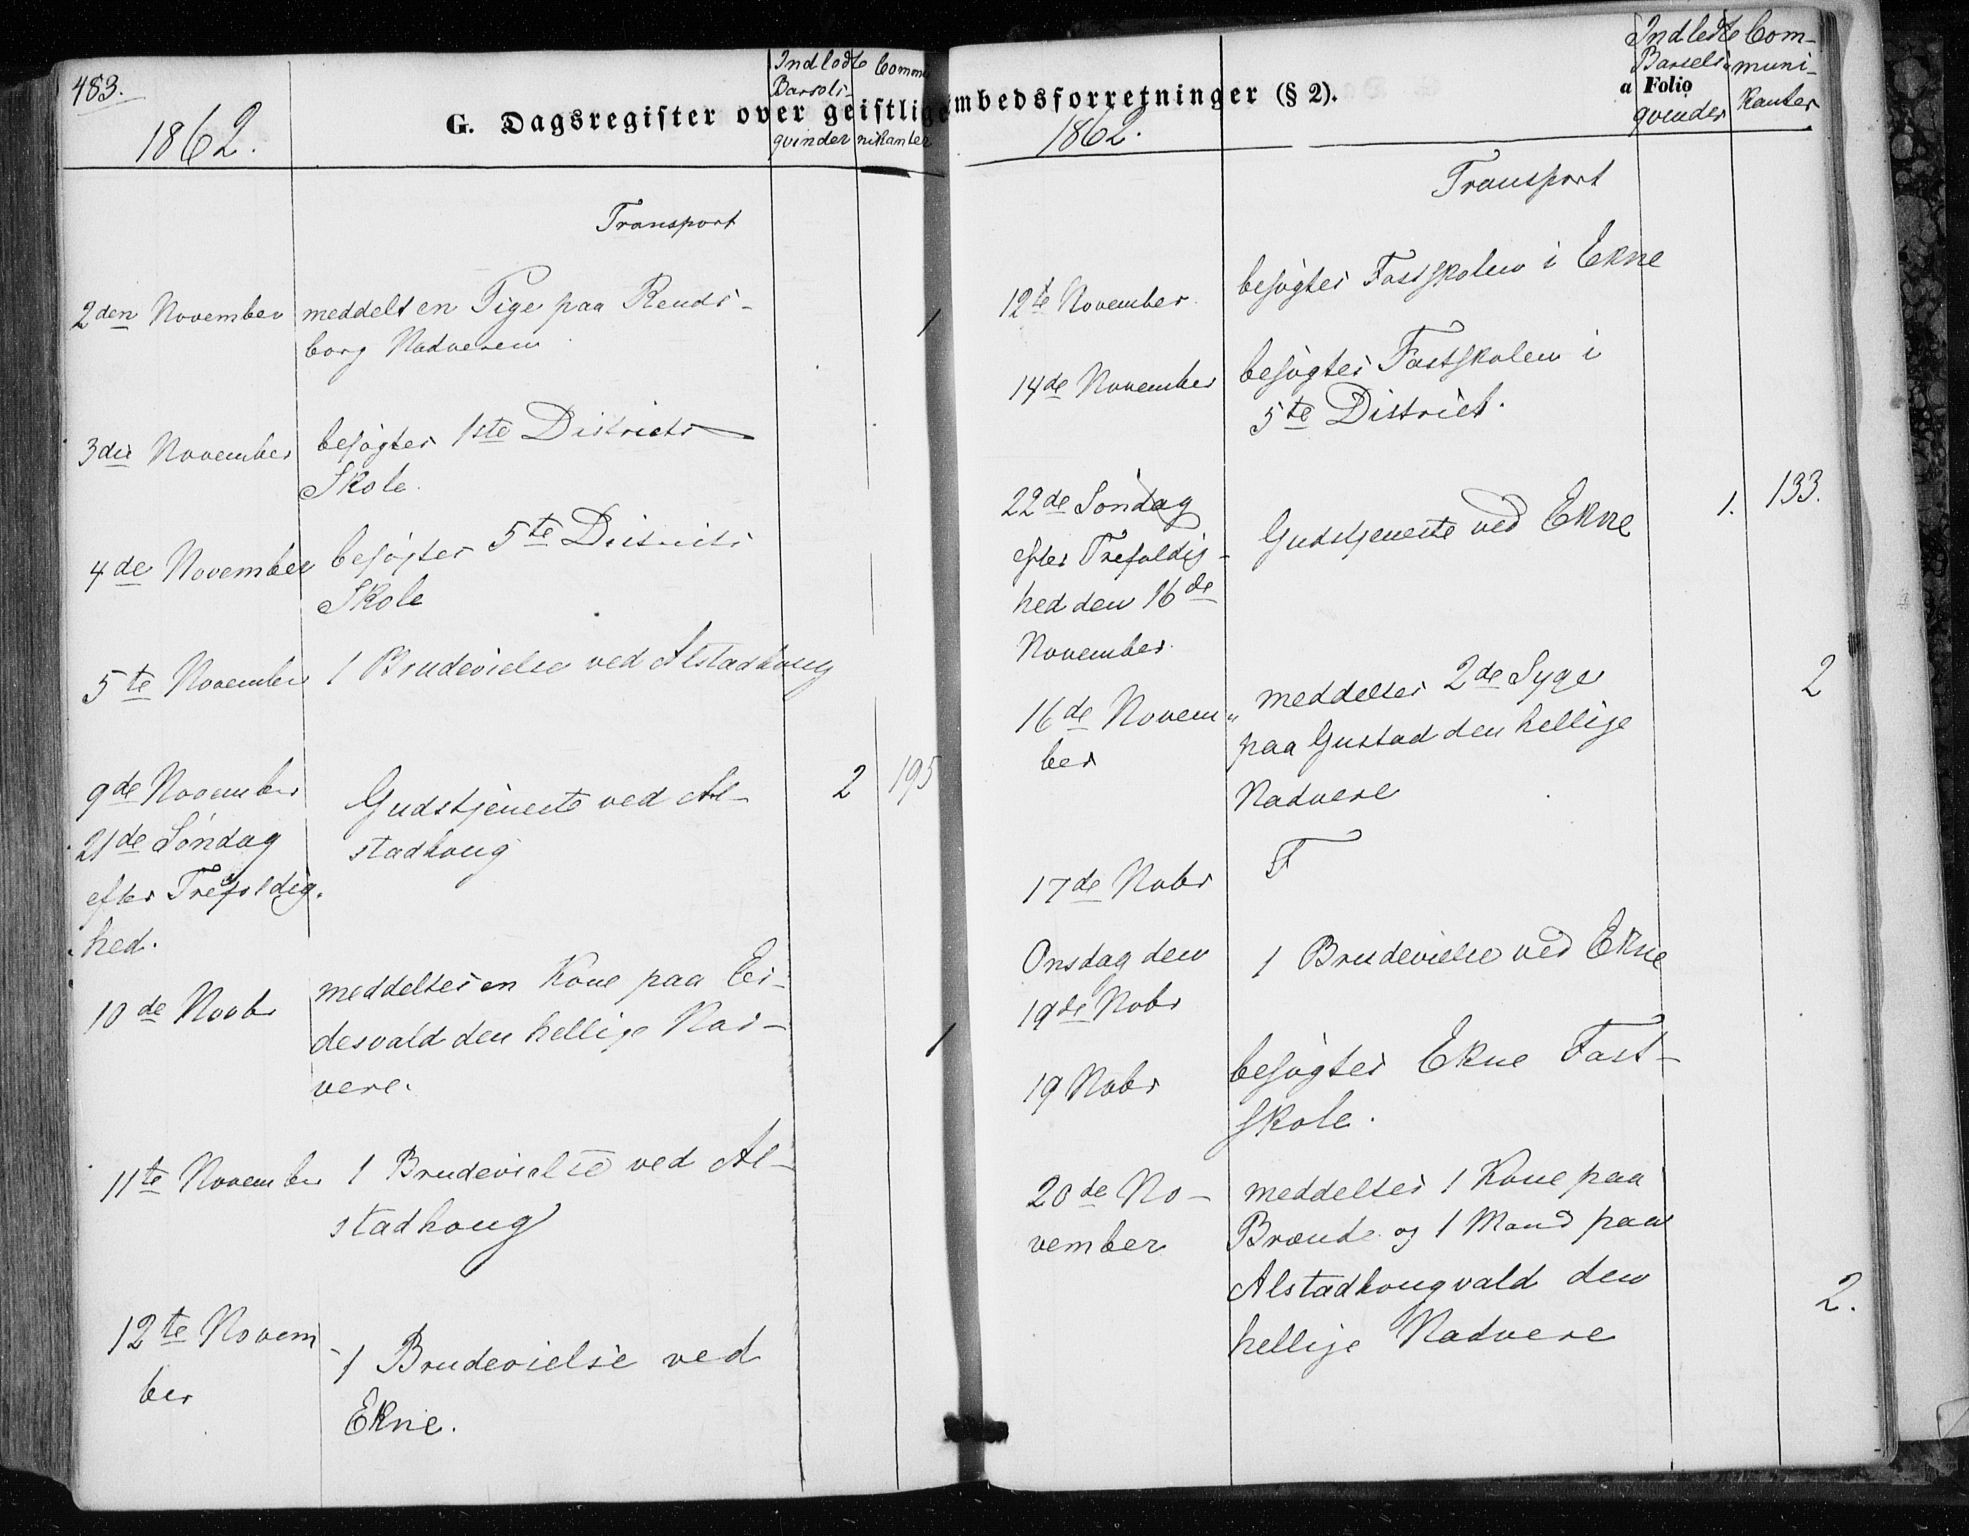 483.
G. Dagsregister over geistlige
1862.
Indledte
Barsels-
qvinder
Commu
nikanter
Transport
2den November meddelt en Pige paa Rends-
borg Nadveren 1
3die November besøgtes 1ste Districts
Skole.
4de November besøgtes 5te Districts
Skole
5te November 1 Brudevielse ved Alstadhoug
9de November
21de Søndag
efter Trefoldig-
hed.
Gudstjeneste ved Al- 2 195
stadhoug
10de Novbr meddeltes en Kone paa Ei-
desvald den hellige Nad- 1
vere.
11te November 1 Brudevielse ved Al-
stadhoug
12te Novem
ber
1 Brudevielse ved
Ekne.
mbedsforretninger (§ 2).
a Folio
1862.
Indledte
Barsels-
qvinder
Com-
muni-
kanter
Transport
12te November besøgtes Fastskolen i Ekne
14de November besøgtes Fastskolen i
5te District.
22de Søndag
efter Trefoldig-
hed den 16de
November.
Gudstjeneste ved Ekne 1. 133.
16de Novem-
ber
meddeltes 2de Syge 2
paa Gustad den hellige
Nadvere
17de Nobr F
Onsdag den
19de Nobr
1 Brudevielse ved Ekne
19 Nobr besøgtes Ekne Fast-
skole.
20de No-
vember
meddeltes 1 Kone paa
Brænde og 1 Mand paa
Alstadhougvald den 2.
hellige Nadvere